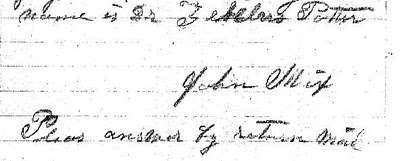 name is Dr Potter
John Mix
Pleas answer by return mail